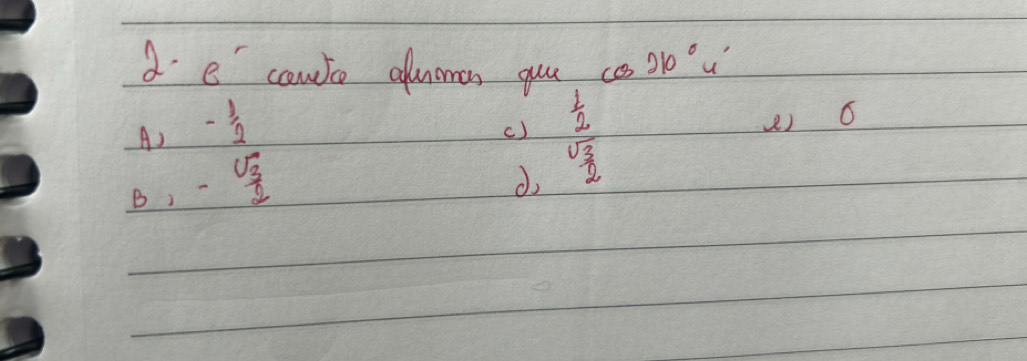 2. é correto afirmar que cos 210° é
A) -1/2 c) 1/2 e) 0
B) -√3/2 d) √3/2